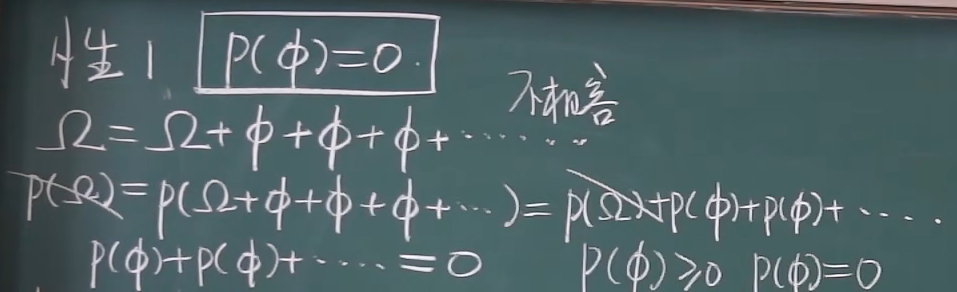 性1 P(φ)=0.
不相容
Ω=Ω+φ+φ+φ+······
P(Ω)=P(Ω+φ+φ+φ+···)=P(Ω)+P(φ)+P(φ)+····.
P(φ)+P(φ)+·····=0 P(φ)≥0 P(φ)=0